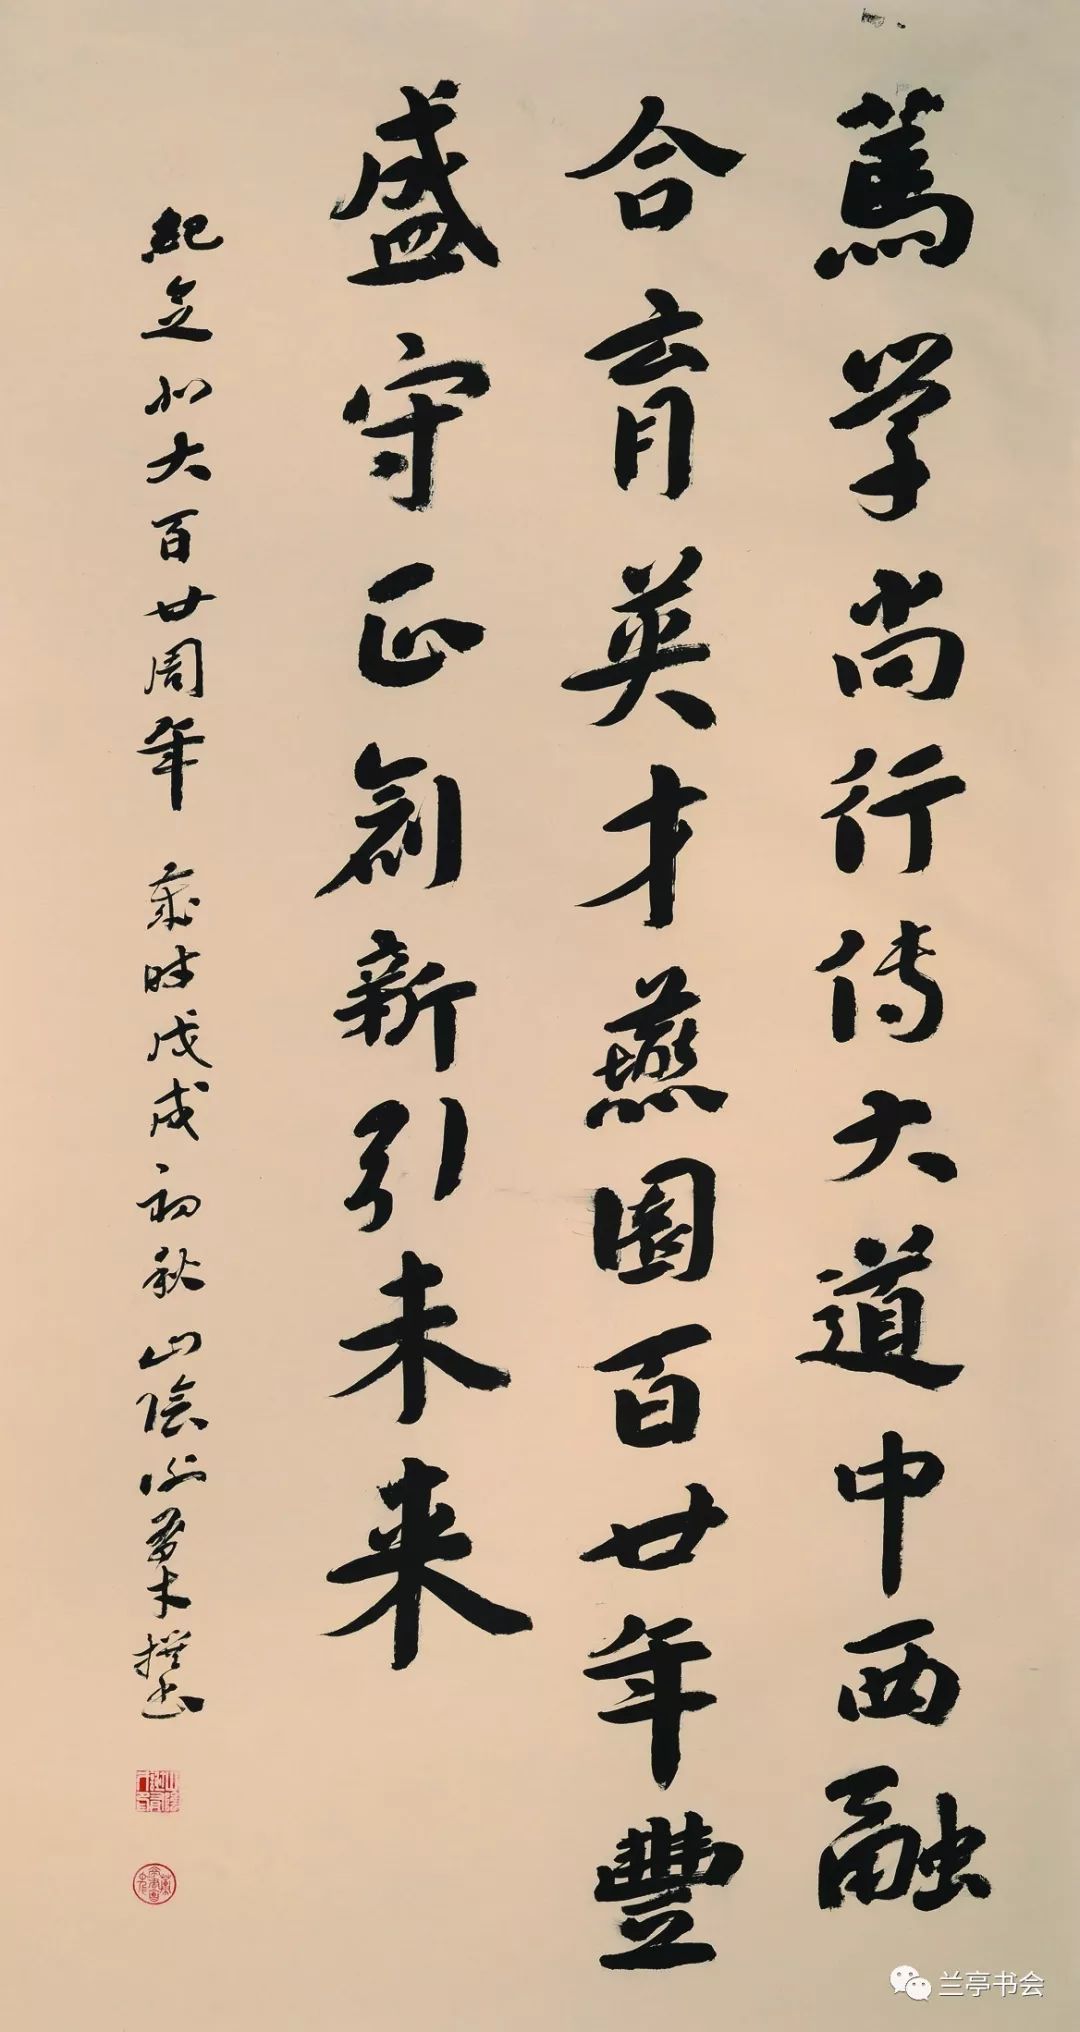 篤学尚行傳大道中西融
合育英才燕園百廿年豐
盛守正創新引未来
紀念北大百廿周年 歲時戊戌初秋 山陰 撰書
兰亭书会